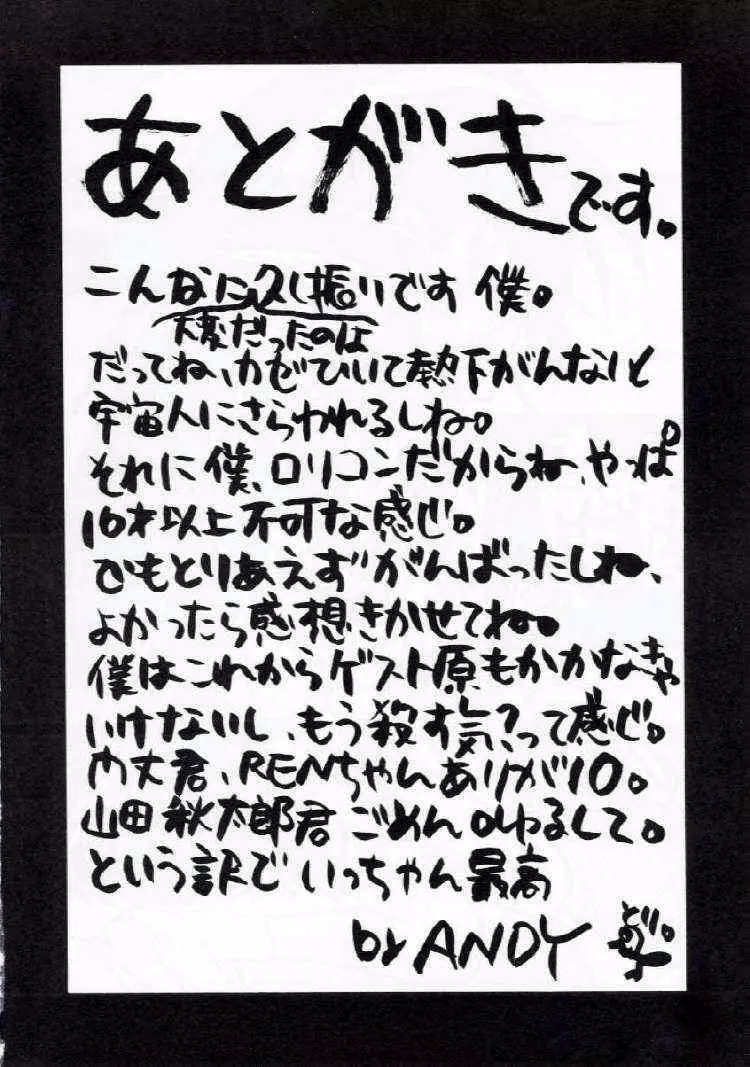 あとがきです。
こんなに久し振いです 僕。
大変だったのは
だってね、カゼひいて熱下がんないと
宇宙人にさらわれるしね。
それに僕、ロリコンだからね、やっぱ
10才以上不可な感じ。
でもとりあえずがんばったしね、
よかったら感想きかせてね。
僕はこれからゲスト原もかかなきゃ
いけないし、もう殺す気?って感じ。
内丈君、RENちゃんありが10。
山田秋太郎君 ごめん ゆるして。
という訳で いっちゃん最高
by ANDY